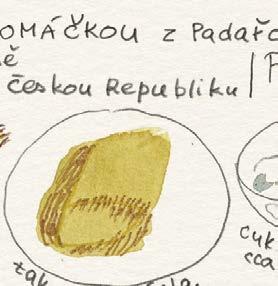 OMÁČKOU z Padařo
ě
českou Republiku
F
zak
cuk
cca